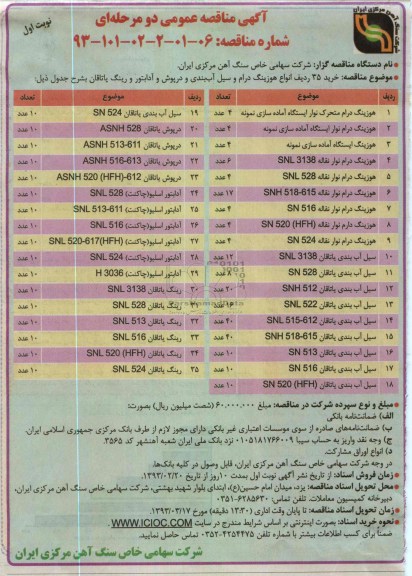 نوبت اول
شرکت سنگ آهن مرکزی ایران
آگهی مناقصه عمومی دو مرحله‌ای
شماره مناقصه: ۰۶-۰۱-۲-۰۲-۱۰۱-۹۳
نام دستگاه مناقصه گزار: شرکت سهامی خاص سنگ آهن مرکزی ایران.
موضوع مناقصه: خرید ۳۵ ردیف انواع هوزینگ درام و سیل آب‌بندی و درپوش و آداپتور و رینگ یاتاقان بشرح جدول ذیل:
ردیف موضوع تعداد ردیف موضوع تعداد
۱ هوزینگ درام متحرک نوار ایستگاه آماده سازی نمونه ۴ عدد ۱۹ سیل آب بندی یاتاقان SN 524 ۱۰ عدد
۲ هوزینگ درام نوار ایستگاه آماده سازی نمونه ۴ عدد ۲۰ درپوش یاتاقان ASNH 528 ۱۰ عدد
۳ هوزینگ درام نوار ایستگاه آماده سازی نمونه ۴ عدد ۲۱ درپوش یاتاقان ASNH 513-611 ۱۰ عدد
۴ هوزینگ درام نوار نقاله SNL 3138 ۶ عدد ۲۲ درپوش یاتاقان ASNH 516-613 ۱۰ عدد
۵ هوزینگ درام نوار نقاله SNL 528 ۴ عدد ۲۳ درپوش یاتاقان ASNH 520 (HFH)-612 ۱۰ عدد
۶ هوزینگ درام نوار نقاله SNH 518-615 ۱۷ عدد ۲۴ آداپتور اسلیو(چاکنت) SNL 528 ۱۰ عدد
۷ هوزینگ درام نوار نقاله SN 516 ۴ عدد ۲۵ آداپتور اسلیو(چاکنت) SNL 513-611 ۱۰ عدد
۸ هوزینگ درام نوار نقاله SN 520 (HFH) ۴ عدد ۲۶ آداپتور اسلیو(چاکنت) SN 516 ۱۰ عدد
۹ هوزینگ درام نوار نقاله SN 524 ۴ عدد ۲۷ آداپتور اسلیو(چاکنت) SNL 520-617(HFH) ۱۰ عدد
۱۰ سیل آب بندی یاتاقان SNL 3138 ۱۲ عدد ۲۸ آداپتور اسلیو(چاکنت) SNL 524 ۱۰ عدد
۱۱ سیل آب بندی یاتاقان SN 528 ۲۹ آداپتور اسلیو(چاکنت) H 3036 ۱۰ عدد
۱۲ سیل آب بندی یاتاقان SNH 512 ۲۰ عدد ۳۰ رینگ یاتاقان SNL 3138 ۱۰ عدد
۱۳ سیل آب بندی یاتاقان SNL 522 ۳۱ رینگ یاتاقان SNL 528 ۱۰ عدد
۱۴ سیل آب بندی یاتاقان SNL 515-612 ۳۲ رینگ یاتاقان SNL 513 ۱۰ عدد
۱۵ سیل آب بندی یاتاقان SNH 518-615 ۳۳ رینگ یاتاقان SNL 516 ۱۰ عدد
۱۶ سیل آب بندی یاتاقان SN 513 ۱۰ عدد ۳۴ رینگ یاتاقان SNL 520 (HFH) ۱۰ عدد
۱۷ سیل آب بندی یاتاقان SN 516 ۱۰ عدد ۳۵ رینگ یاتاقان SNL 524 ۱۰ عدد
۱۸ سیل آب بندی یاتاقان SN 520 (HFH) ۱۰ عدد
مبلغ و نوع سپرده شرکت در مناقصه: مبلغ ۶۰،۰۰۰،۰۰۰ (شصت میلیون ریال) بصورت:
الف) ضمانت‌نامه بانکی
ب) ضمانت‌نامه‌های صادره از سوی موسسات اعتباری غیر بانکی دارای مجوز لازم از طرف بانک مرکزی جمهوری اسلامی ایران.
ج) وجه نقد واریز به حساب سیبا ۰۱۰۵۱۸۱۷۶۶۰۰۹ نزد بانک ملی ایران شعبه آهنشهر کد ۳۵۶۵.
د) انواع اوراق مشارکت.
در وجه شرکت سهامی خاص سنگ آهن مرکزی ایران، قابل وصول در کلیه بانک‌ها.
زمان فروش اسناد: از تاریخ نشر آگهی نوبت اول بمدت ۱۰روز از تاریخ ۱۳۹۳/۰۲/۲۰.
محل تحویل اسناد مناقصه: یزد، میدان امام حسین(ع)، ابتدای بلوار شهید بهشتی، شرکت سهامی خاص سنگ آهن مرکزی ایران، دبیرخانه کمیسیون معاملات. تلفن تماس: ۶۲۸۵۶۳۰-۰۳۵۱
زمان تحویل اسناد مناقصه: تا پایان وقت اداری (۱۳:۳۰ دقیقه) مورخ ۱۳۹۳/۰۳/۱۷.
نحوه خرید اسناد: بصورت اینترنتی بر اساس شرایط مندرج در سایت WWW.ICIOC.COM
ضمناً برای کسب اطلاعات بیشتر با شماره تلفن ۴۲۵۴۴۷۵-۰۳۵۲ تماس حاصل نمایید.
شرکت سهامی خاص سنگ آهن مرکزی ایران